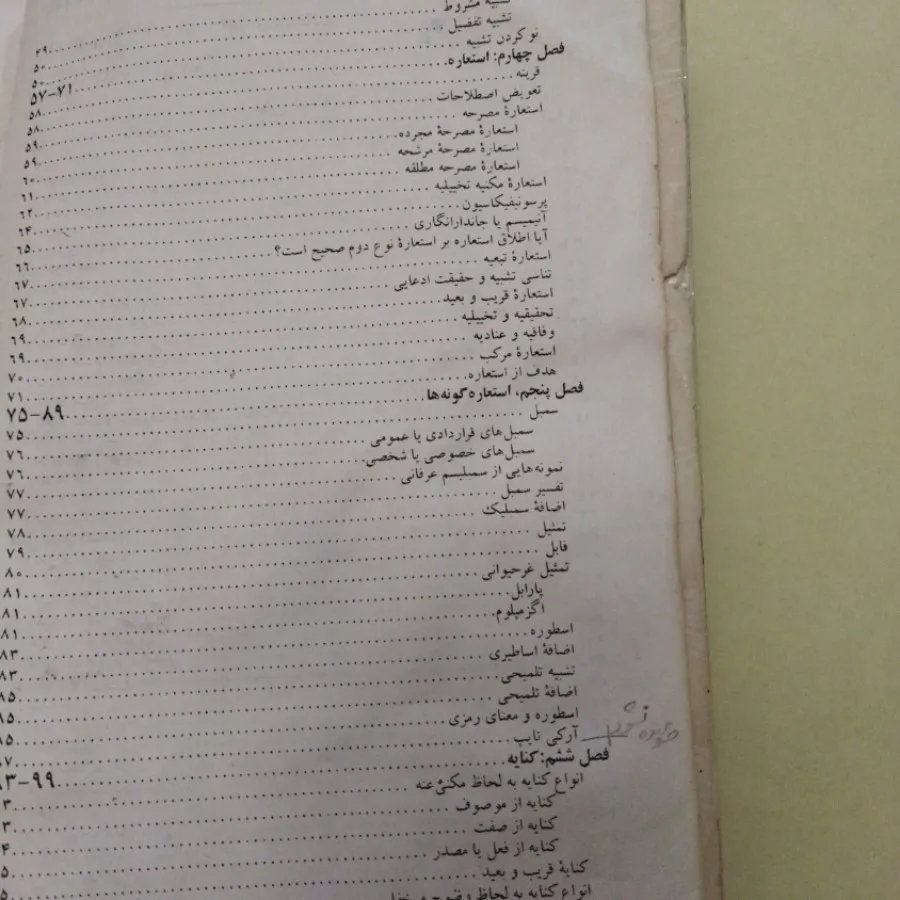 تشبیه مشروط ۴۹
تشبیه تفضیل ۵۰
نو کردن تشبیه ۵۰
فصل چهارم: استعاره ۵۷-۷۱
قرینه ۵۸
تعویض اصطلاحات ۵۸
استعارهٔ مصرحه ۵۹
استعارهٔ مصرحهٔ مجرده ۵۹
استعارهٔ مصرحهٔ مرشحه ۶۰
استعارهٔ مصرحه مطلقه ۶۱
استعارهٔ مکنیه تخییلیه ۶۲
پرسونیفیکاسیون ۶۴
آنیمیسم یا جاندارانگاری ۶۵
آیا اطلاق استعاره بر استعارهٔ نوع دوم صحیح است؟ ۶۶
استعارهٔ تبعیه ۶۷
تناسی تشبیه و حقیقت ادعایی ۶۷
استعارهٔ قریب و بعید ۶۸
تحقیقیه و تخییلیه ۶۹
وفاقیه و عنادیه ۶۹
استعارهٔ مرکب ۷۰
هدف از استعاره ۷۱
فصل پنجم، استعاره‌گونه‌ها ۷۵-۸۹
سمبل ۷۵
سمبل‌های قراردادی یا عمومی ۷۶
سمبل‌های خصوصی یا شخصی ۷۶
نمونه‌هایی از سمبلیسم عرفانی ۷۷
تفسیر سمبل ۷۷
اضافهٔ سمبلیک ۷۸
تمثیل ۷۹
فابل ۸۰
تمثیل غرحیوانی ۸۱
پارابل ۸۱
اگزمپلوم ۸۱
اسطوره ۸۳
اضافهٔ اساطیری ۸۳
تشبیه تلمیحی ۸۵
اضافهٔ تلمیحی ۸۵
اسطوره و معنای رمزی ۸۵
آرکی تایپ ۸۷
فصل ششم: کنایه ۹۳-۹۹
انواع کنایه به لحاظ مکنیٌ‌عنه ۳
کنایه از موصوف ۳
کنایه از صفت ۴
کنایه از فعل یا مصدر ۵
کنایهٔ قریب و بعید ۵
انواع کنایه به لحاظ وضوح و خفا